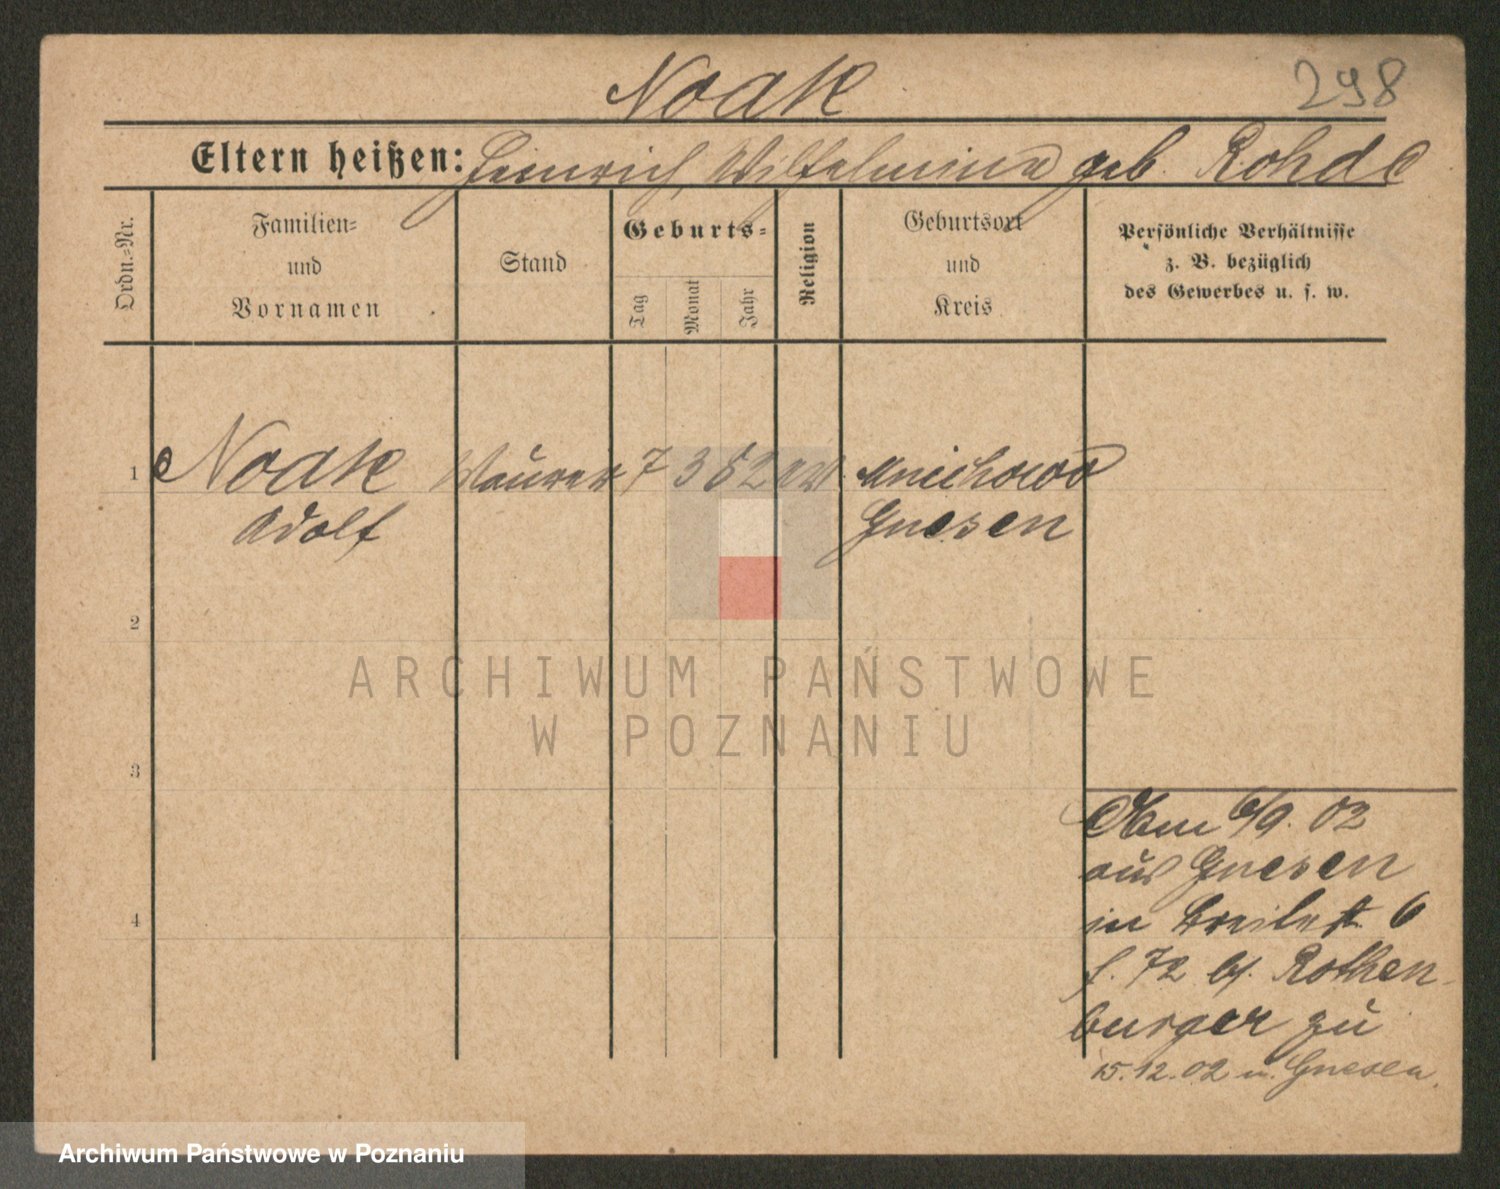 Noak
298
Eltern heißen: Heinrich, Wilhelmine geb. Rohde
Ordn.-Nr.
Familien-
und
Vornamen
Stand
Geburts-
Tag
Monat
Jahr
Religion
Geburtsort
und
Kreis
Persönliche Verhältnisse
z. B. bezüglich
des Gewerbes u. s. w.
1 Noak Maurer 7 3 52 ev. Mnichowo
Adolf Gnesen
2
3
4
6/9. 02
aus Gnesen
in 6
f. 72 bf. Rothen-
burger zu
15.12.02 n. Gnesen.
ARCHIWUM PAŃSTWOWE
W POZNANIU
Archiwum Państwowe w Poznaniu